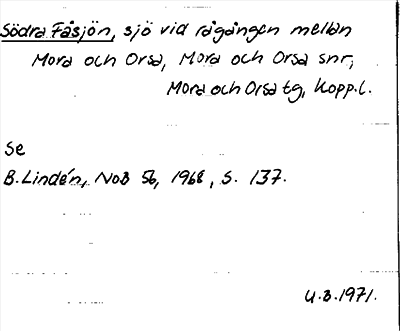 Södra Fåsjön, sjö vid rågången mellan
Mora och Orsa, Mora och Orsa snr,
Mora och Orsa tg, Kopp.l.
Se
B. Lindén, NoB 56, 1968, s. 137.
U.B. 1971.